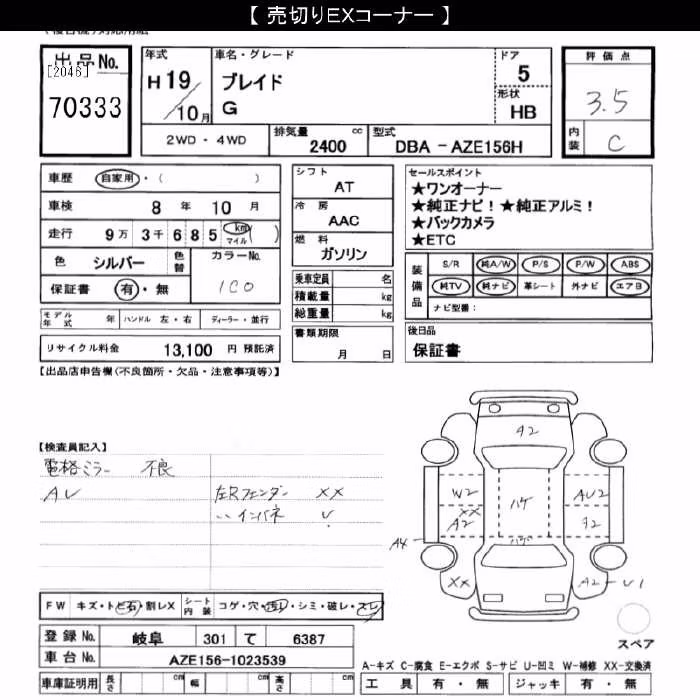 【 売切りEXコーナー 】
出品No.
[2046]
70333
年式
H 19/10月
車名・グレード
ブレイド
G
ドア
5
形状
HB
評価点
3.5
内装
C
2WD・4WD
排気量 cc
2400
型式
DBA-AZE156H
車歴 自家用・( )
車検 8 年 10 月
走行 9万 3千 6 8 5 km マイル ( )
色 シルバー 色替 カラーNo.
1C0
保証書 有・無
モデル年式 年 ハンドル 左・右 ディーラー・並行
リサイクル料金 13,100 円 預託済
シフト
AT
冷房
AAC
燃料
ガソリン
乗車定員 名
積載量 kg
総重量 kg
書類期限
月 日
セールスポイント
★ワンオーナー
★純正ナビ！★純正アルミ！
★バックカメラ
★ETC
装備品
S/R 純A/W P/S P/W ABS
純TV 純ナビ 革シート 外ナビ エアB
ナビ型番:
後日品
保証書
【出品店申告欄(不良箇所・欠品・注意事項等)】
【検査員記入】
電格ミラー 不良
AU
左Rフェンダー XX
〃 インパネ
A2
W2
XX
A2
ハゲ
AU2
A4
XX
A2
U1
FW キズ・トビ石・割レX シート内装 コゲ・穴・汚レ・シミ・破レ・スレ
登録No. 岐阜 301 て 6387
車台No. AZE156-1023539
車庫証明用 長さ cm 幅 cm 高さ cm
スペア
A-キズ C-腐食 E-エクボ S-サビ U-凹ミ W-補修 XX-交換済
工具 有・無 ジャッキ 有・無